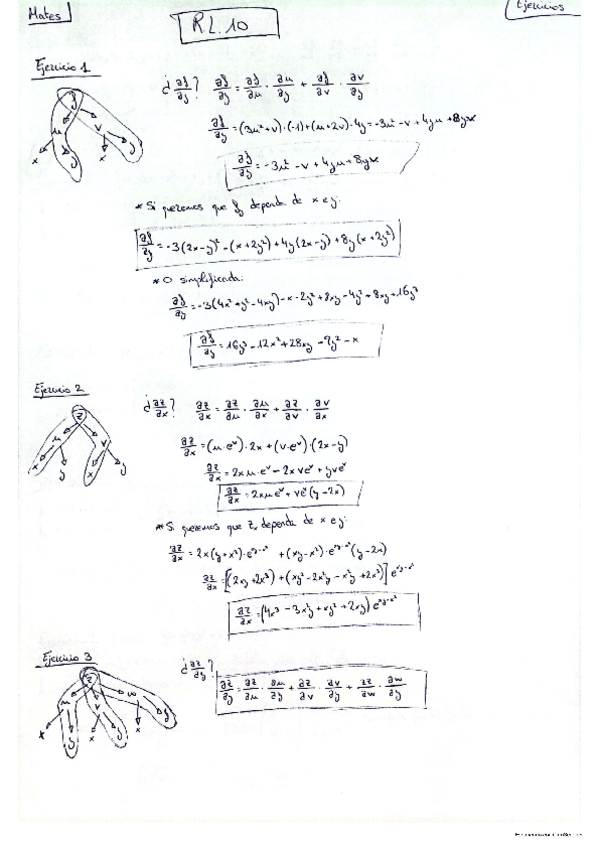 Mates
R.L. 10
Ejercicios
Ejercicio 1
¿∂f/∂y? ∂f/∂y = ∂f/∂u · ∂u/∂y + ∂f/∂v · ∂v/∂y
∂f/∂y = (3u²+v)·(-1)+(u+2v)·4y = -3u²-v+4yu+8yv
∂f/∂y = -3u²-v+4yu+8yv
* Si queremos que fy dependa de x e y:
∂f/∂y = -3(2x-y)²-(x+2y²)+4y(2x-y)+8y(x+2y²)
* O simplificada:
∂f/∂y = -3(4x²+y²-4xy)-x-2y²+8xy-4y²+8xy+16y³
∂f/∂y = 16y³-12x²+28xy-9y²-x
Ejercicio 2
¿∂z/∂x? ∂z/∂x = ∂z/∂u · ∂u/∂x + ∂z/∂v · ∂v/∂x
∂z/∂x = (u·eᵛ)·2x+(v·eᵛ)·(2x-y)
∂z/∂x = 2xu·eᵛ-2xveᵛ+yveᵛ
∂z/∂x = 2xueᵛ+veᵛ(y-2x)
* Si queremos que zx dependa de x e y:
∂z/∂x = 2x(y+x²)·e^(xy-x²) +(xy-x²)·e^(xy-x²)(y-2x)
∂z/∂x = [(2xy+2x³)+(xy²-2x²y-x²y+2x³)] e^(xy-x²)
∂z/∂x = (4x³-3x²y+xy²+2xy) e^(xy-x²)
Ejercicio 3
¿∂z/∂y?
∂z/∂y = ∂z/∂u · ∂u/∂y + ∂z/∂v · ∂v/∂y + ∂z/∂w · ∂w/∂y